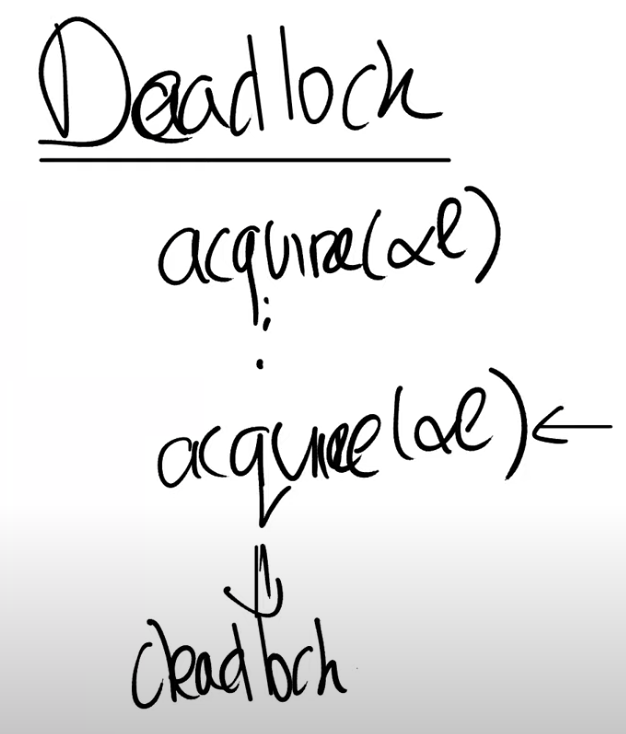 Deadlock
acquire(&l)
:
.
acquire(&l) ←
⇓
deadlock